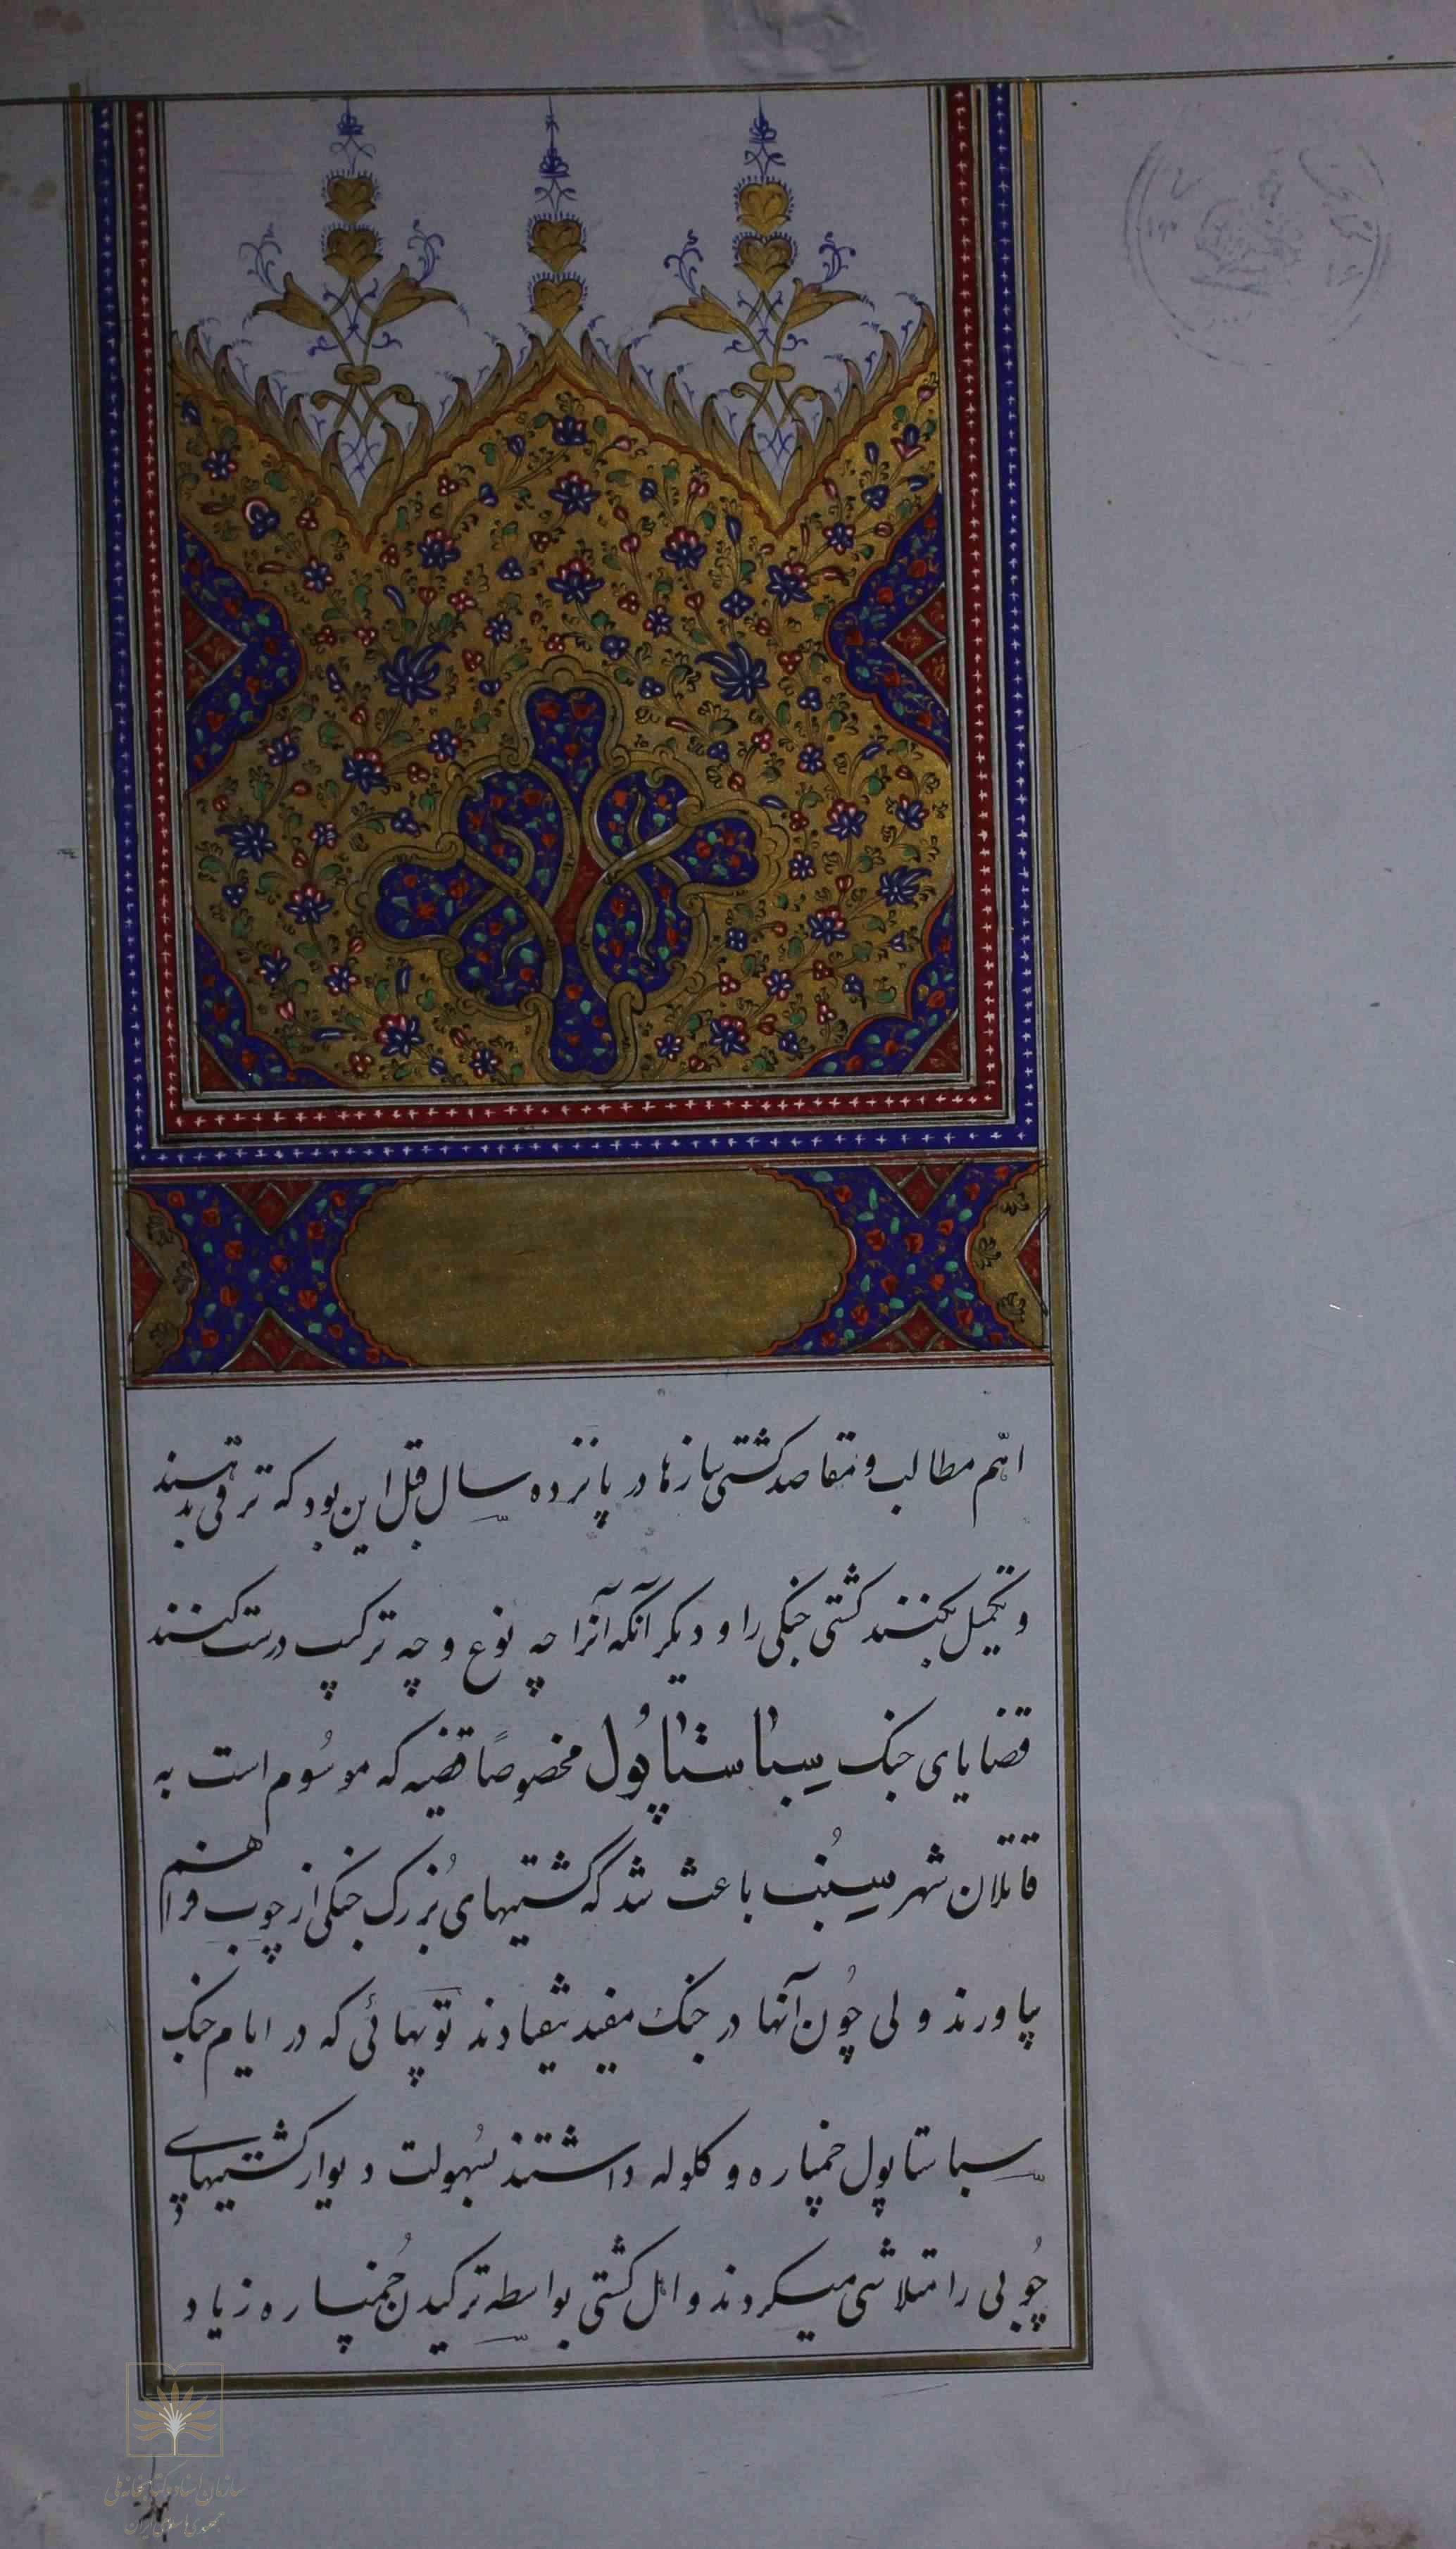 اهّم مطالب و مقاصد کشتی سازها در پانزده سال قبل این بود که ترقی بدهند
و تکمیل بکنند کشتی جنکی را و دیکر آنکه آنرا چه نوع و چه ترکیب درست کنند
قضایای جنک سباستاپُول مخصوصاً قضیه که موسُوم است به
قاتلان شهر سینُب باعث شد که کشتیهای بُزرک جنکی از چوب فراهم
بیاورند ولی چُون آنها در جنک مفید نیفتادند توپهائی که در ایام جنک
سباستاپول خمپاره و کلوله داشتند بسُهولت دیوار کشتیهای
چُوبی را متلاشی میکردند و اهل کشتی بواسطه ترکیدن خُمپاره زیاد
سازمان اسناد و کتابخانه ملی
جمهوری اسلامی ایران